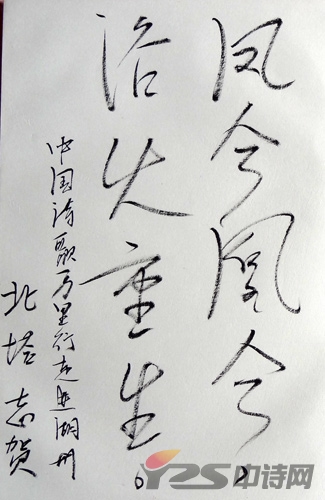 凤兮凰兮，
浴火重生。
中国诗歌万里行走进湖州
北塔志贺
中诗网